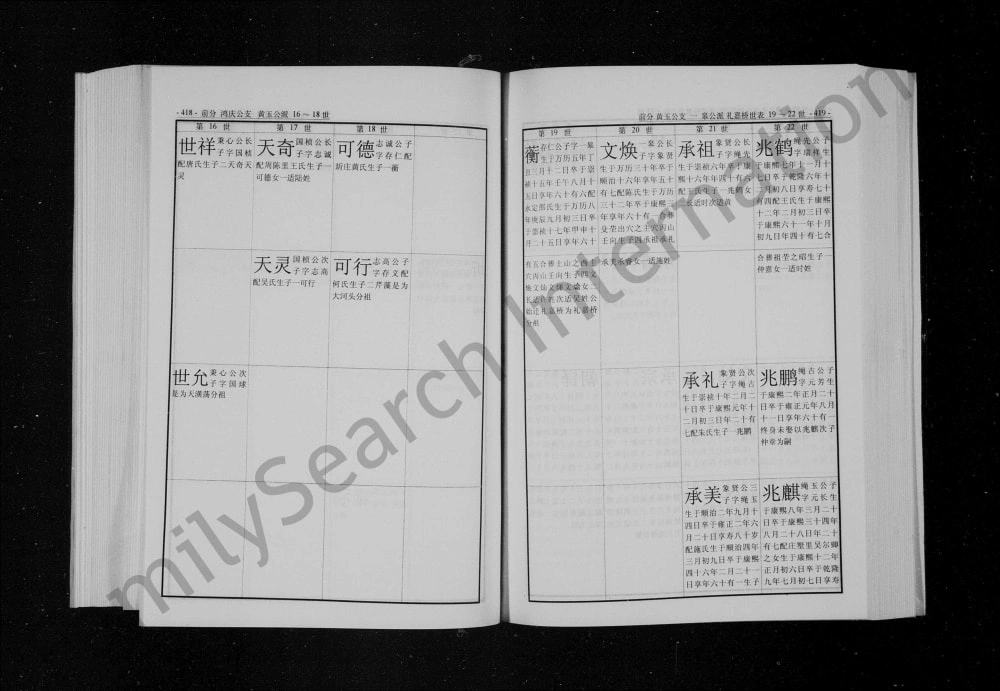 -418- 前分 鸿庆公支 黄玉公派 16～18世
第16世 第17世 第18世
世祥 秉心公长子字国桢
配唐氏生子二天奇天灵
天奇 国桢公长子字志诚
配周陈里王氏生子一
可德女一适陆姓
可德 志诚公子字存仁配
坜庄黄氏生子一衡
天灵 国桢公次子字志高
配吴氏生子一可行
可行 志高公子字存义配
何氏生子二芹藻是为
大河头分祖
世允 秉心公次子字国球
是为天潢荡分祖
前分 黄玉公支 一 公派 礼嘉桥世表 19～22世 -419-
第19世 第20世 第21世 第22世
衡 存仁公子字一
生于万历五年丁
丑三月十二日卒于崇
祯十五年壬午八月十
五日享年六十有六配
永定邵氏生于万历八
年庚辰九月初三日卒
于崇祯十七年甲申十
二月二十五日享年六十
有五合葬土山之西土
穴丙山壬向生子四文
焕文灿文灿文瑜女二
长适许姓次适吴姓公
始迁礼嘉桥为礼嘉桥
分祖
文焕 一 公长子字象贤
生于万历三十年卒于
顺治十六年享年五十
有七配陈氏生于万历
三十二年卒于康熙二
年享年六十有一合葬
殳茔出穴之主穴丙山
壬向生子四承祖承礼
承美承睿女一适施姓
承祖 象贤公长子字绳先
生于崇祯十年卒于康
熙十六年年四十有一
配王氏生子一兆鹤女
二长适时次适黄
兆鹤 绳先公子字瑞祥生
于康熙七年十一月十
七日卒于乾隆六年十
二月初八日享寿七十
有四配王氏生于康熙
十二年二月初三日卒
于康熙六十一年十月
初九日年四十有七合
合葬祖茔之昭生子一
仲嘉女一适时姓
承礼 象贤公次子字绳古
生于崇祯十年二月二
十日卒于康熙元年十
二月初三日年二十有
七配朱氏生子一兆鹏
兆鹏 绳古公子字元芳生
于康熙二年正月二十
日卒于雍正元年八月
十一日享年六十有一
终身未娶以兆麒次子
仲章为嗣
承美 象贤公三子字绳玉
生于顺治二年九月十
四日卒于雍正二年六
月二十日享寿八十岁
配施氏生于顺治四年
三月初九日卒于康熙
四十六年二月二十一
日享年六十有一生子
兆麒 绳玉公子字元长生
于康熙八年三月二十
日卒于康熙三十四年
八月二十八日年二十
有七配庄墅里吴尔卿
之女生于康熙十二年
正月初六日卒于乾隆
九年七月初七日享寿
milySearch Internation